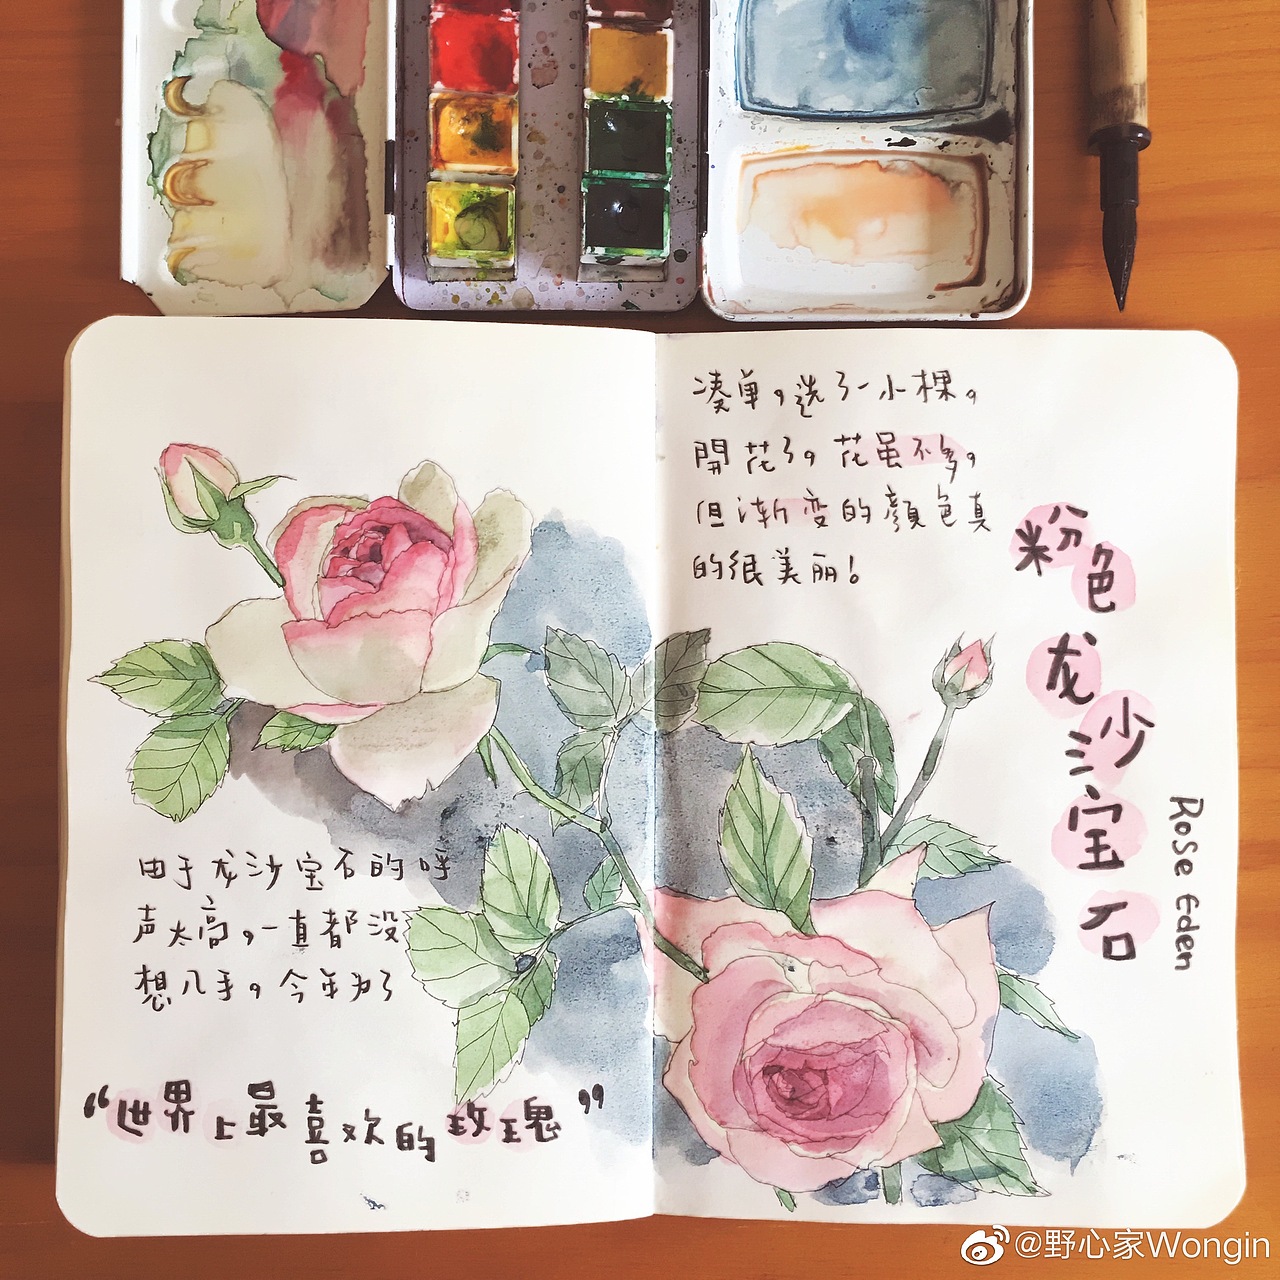 由于龙沙宝石的呼
声太高，一直都没
想入手。今年为了
“世界上最喜欢的玫瑰”
凑单，选了一小棵。
開花了，花虽不多，
但渐变的顔色真
的很美丽！
粉色
龙沙宝石
Rose Eden
@野心家Wongin